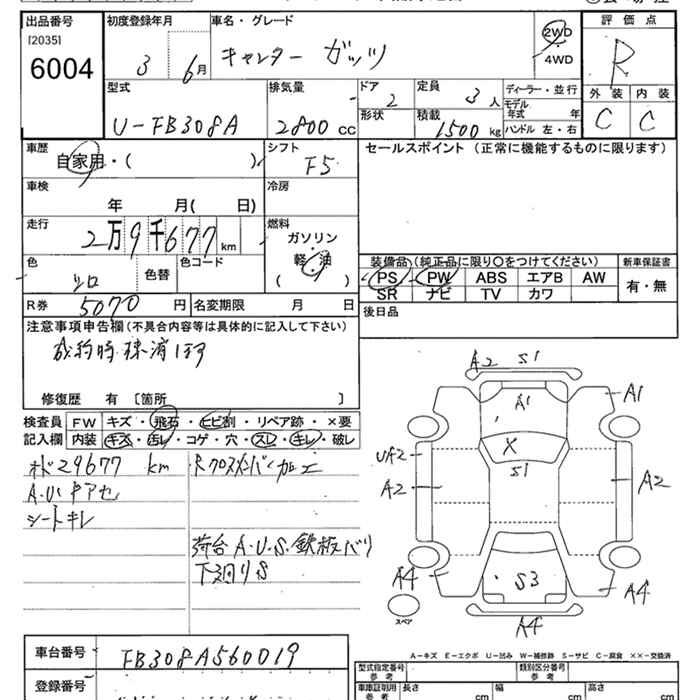 出品番号
[2035]
6004
初度登録年月
3 6月
車名・グレード
キャンター ガッツ
2WD
・
4WD
評価点
R
外装 内装
C C
型式
U-FB308A
排気量
2800 CC
ドア
2
定員
3人
形状
積載
1500 kg
ディーラー・並行
モデル年式 年
ハンドル 左・右
車歴
自家用・( )
シフト
F5
セールスポイント (正常に機能するものに限ります)
車検
年 月( 日)
冷房
走行
2万9千677km
燃料
ガソリン
軽・油
( )
色
シロ
色替
色コード
装備品(純正品に限り〇をつけてください)
PS PW ABS エアB AW
SR ナビ TV カワ
新車保証書
有・無
R券 5070 円
名変期限 月 日
後日品
注意事項申告欄(不具合内容等は具体的に記入して下さい)
成約時抹消1ヶ月
修復歴 有 [箇所 ]
検査員
記入欄
FW キズ・飛石・ヒビ割・リペア跡・×要
内装 キズ・汚レ・コゲ・穴・スレ・キレ・破レ
29677 km
A.U
シートキレ
クロスメンバー加工
荷台 A.U.S.鉄板バリ
下廻りS
A2 S1
A1
A1
X
S1
UA2
A2
A2
A4
S3
A4
A4
スペア
A-キズ E-エクボ U-凹み W-補修跡 S-サビ C-腐食 ××-交換済
車台番号
FB308A560019
登録番号
型式指定番号
参考
類別区分番号
参考
車庫証明用
参考
長さ cm
幅 cm
高さ cm